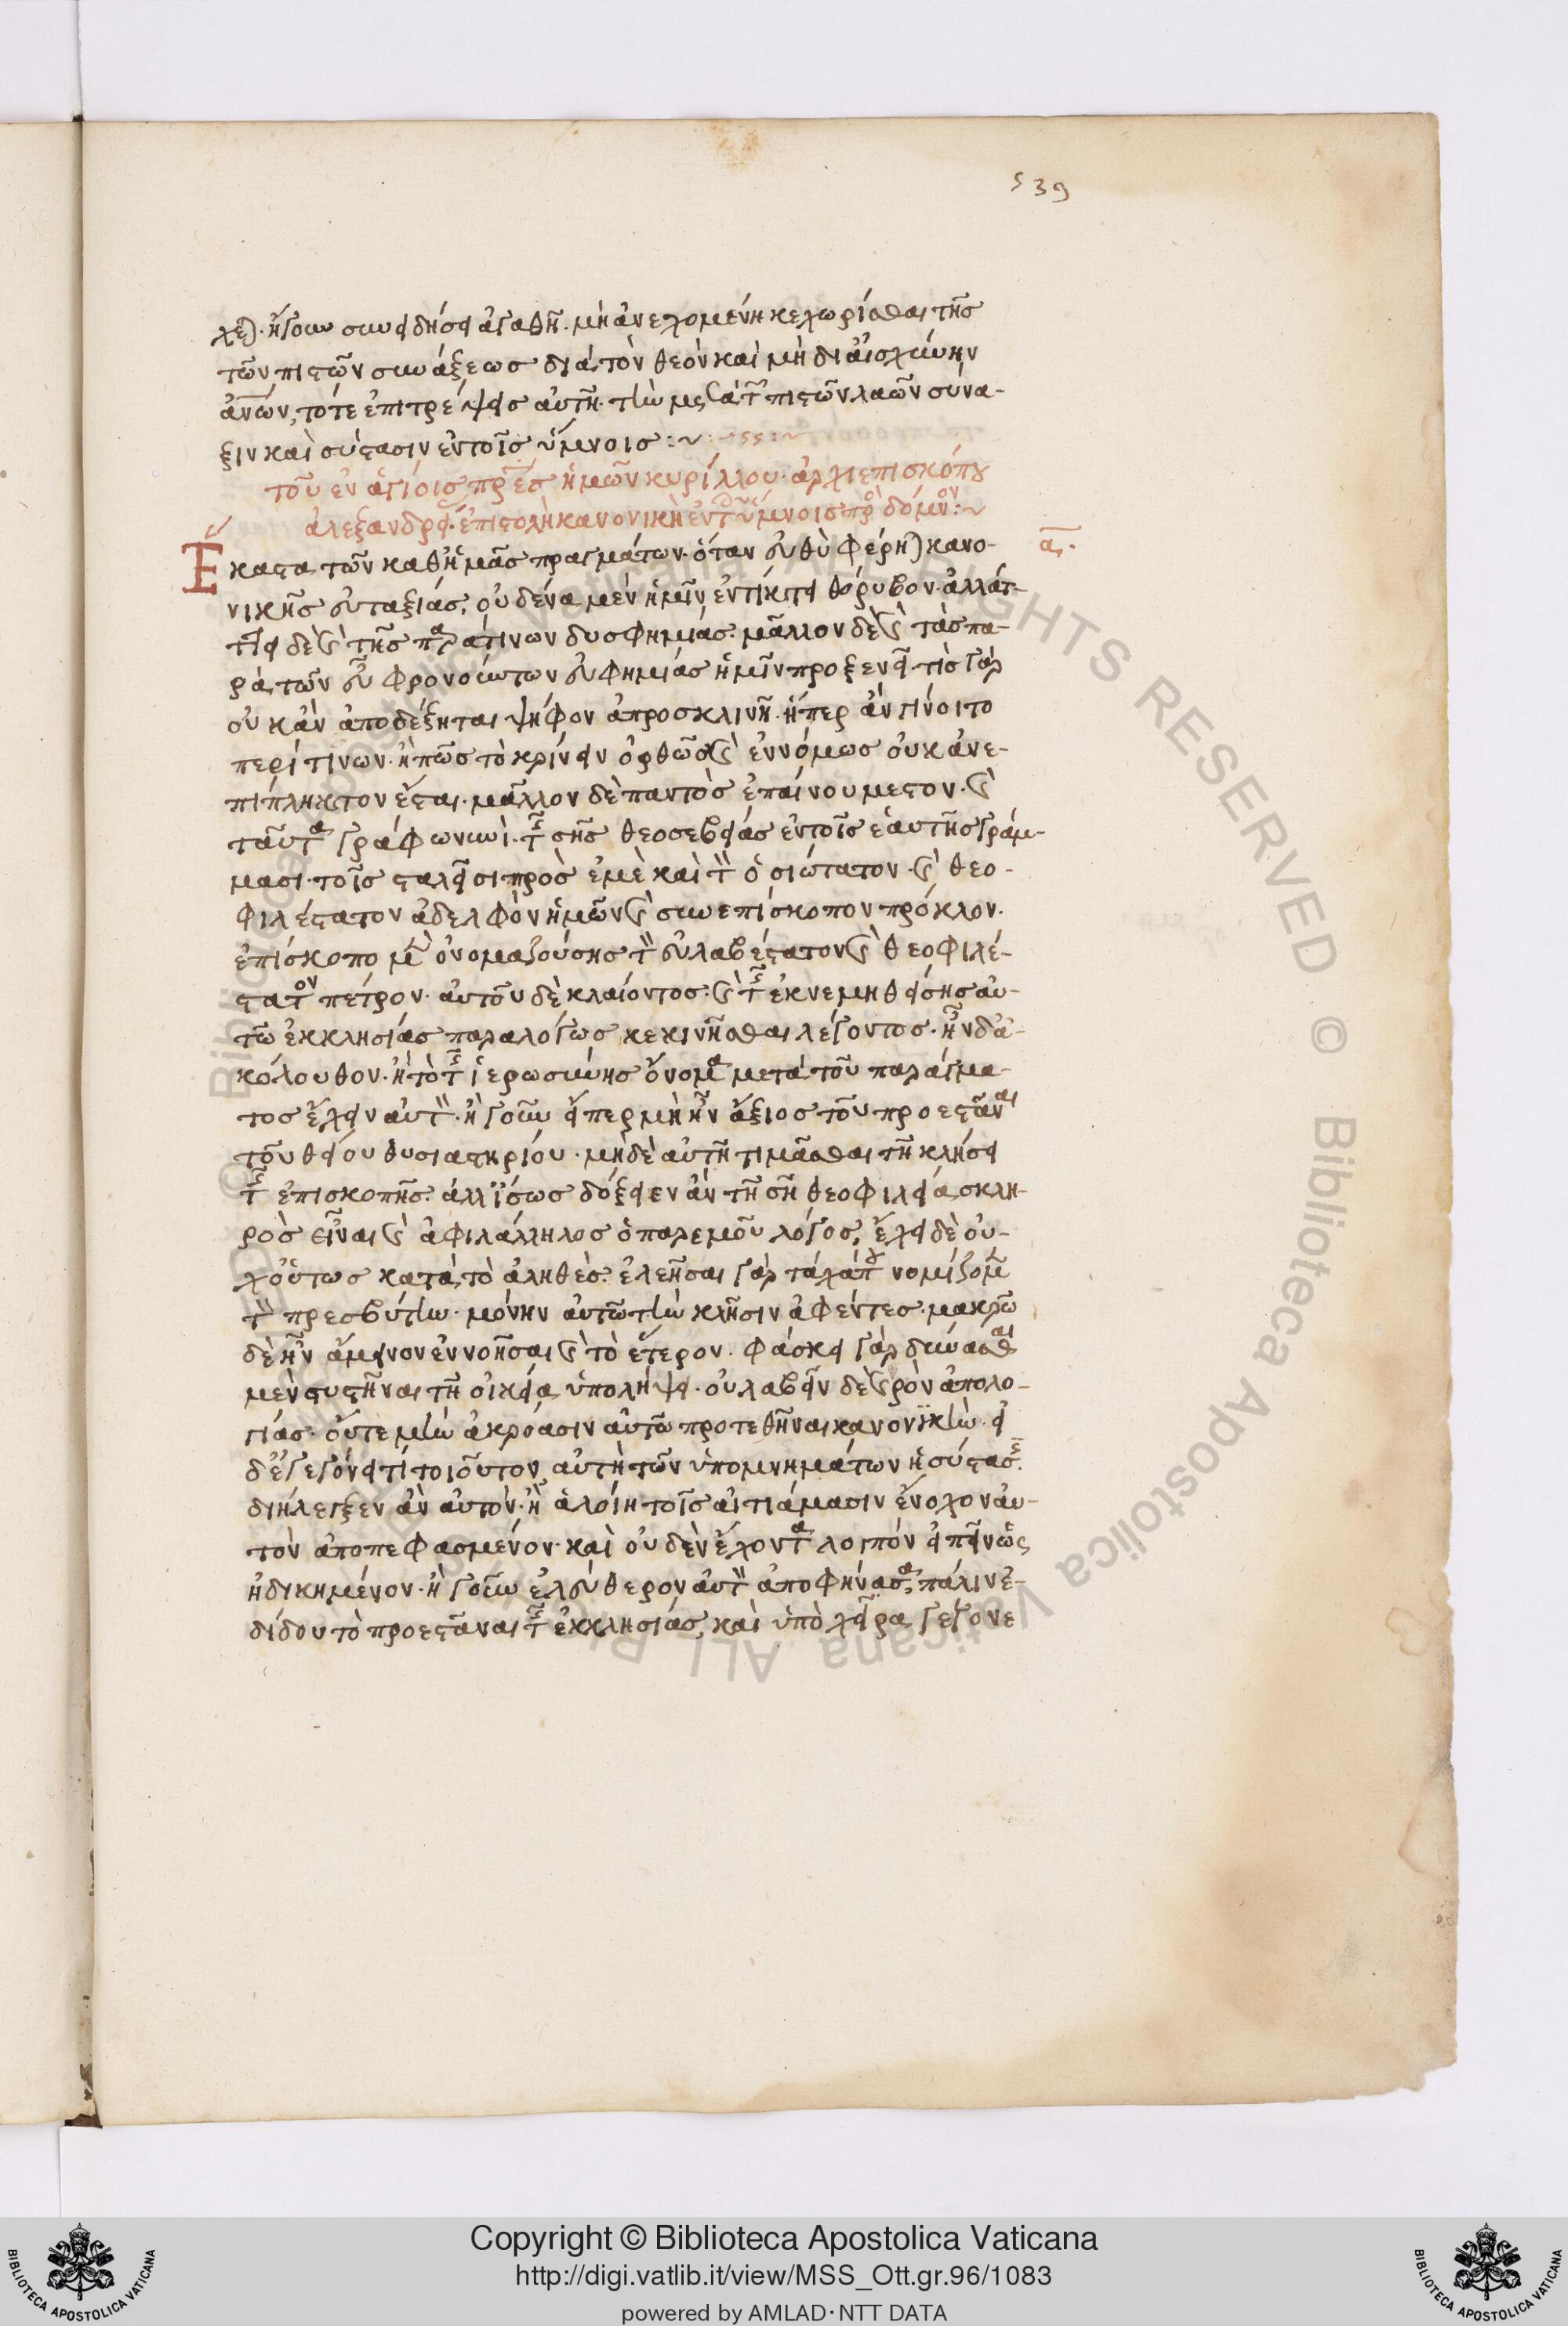 539
χε). ἤγουν συνειδήσει ἀγαθῆ. μὴ ἀνεχομένη κεχωρίσθαι τῆς
τῶν πιστῶν συνάξεως διὰ τὸν θεὸν καὶ μὴ δι αἰσχύνην
ἀνων, τότε ἐπιτρέψεις αὐτῆ. τὴν μετὰ τ πιστῶν λαῶν σύνα-
ξιν καὶ σύστασιν ἐν τοῖς ὕμνοις :~
τοῦ ἐν ἁγίοις πρς ἡμῶν κυρίλλου. ἀρχιεπισκόπου
ἀλεξανδρεί. ἐπιστολὴ κανονικὴ ἐν τ ὕμνοις πρ δόμνον :~
ᾱ.
Εκαστα τῶν καθ ἡμᾶς πραγμάτων. ὅταν εὐθὺ φέρη) κανο-
νικῆς εὐταξίας, οὐδένα μὲν ἡμῖν ἐντίκτει θόρυβον. ἀλλάτ-
τει δὲ καὶ τῆς παρά τινων δυσφημίας. μᾶλλον δὲ καὶ τὰς πα-
ρὰ τῶν εὖ φρονούντων εὐφημίας ἡμῖν προξενεῖ. τίς γὰρ
οὐκ ἂν ἀποδέξηται ψῆφον ἀπροσκλινῆ. ἥπερ ἂν γίνοιτο
περί τινων. ἢ πῶς τὸ κρίνειν ὀρθῶς καὶ ἐννόμως οὐκ ἀνε-
πίπληκτον ἔσται. μᾶλλον δὲ παντὸς ἐπαίνου μεστον. καὶ
ταῦτα γράφω νυνὶ. τῆς σῆς θεοσεβείας ἐν τοῖς ἑαυτῆς γράμ-
μασι. τοῖς σταλεῖσι πρὸς ἐμὲ καὶ τὸν ὁσιώτατον. καὶ θεο-
φιλέστατον ἀδελφὸν ἡμῶν καὶ συνεπίσκοπον πρόκλον.
ἐπίσκοπο μὲν ὀνομαζούσης τὸν εὐλαβέστατον καὶ θεοφιλέ-
στατον πέτρον. αὐτοῦ δὲ κλαίοντος. καὶ τῆς ἐκνεμηθείσης αὐ-
τῶ ἐκκλησίας παραλόγως κεκινῆσθαι λέγοντος. ἦν δ' ἀ-
κόλουθον. ἢ τὸ τῆς ἱερωσύνης ὄνομα μετὰ τοῦ πράγμα-
τος ἔχειν αὐτὸν. ἢ γοῦν εἴπερ μὴ ἦν ἄξιος τοῦ προεστᾶναι
τοῦ θείου θυσιαστηρίου. μὴ δὲ αὐτῆ τιμᾶσθαι τῆ κλήσει
τῆς ἐπισκοπῆς. ἀλλ ἴσως δόξειεν ἂν τῆ σῆ θεοφιλεία, σκλη-
ρὸς εἶναι καὶ ἀφιλάλληλος ὁ παρ ἐμοῦ λόγος, ἔχει δὲ οὐ-
χ οὕτως κατὰ τὸ ἀληθὲς. ἐλεῆσαι γὰρ τάχα που νομίζομεν
τὸν πρεσβύτην. μόνην αὐτῶ τὴν κλῆσιν ἀφέντες. μακρῶ
δὲ ἦν ἄμεινον ἐννοῆσαι καὶ τὸ ἕτερον. φάσκει γὰρ δύνασθαι
μὲν συστῆναι τῆ οἰκεία ὑπολήψει. οὐ λαβεῖν δὲ καιρὸν ἀπολο-
γίας. οὔτε μὴν ἀκρόασιν αὐτῶ προτεθῆναι κανονικὴν. εἰ
δ' ἐγεγόνει τί τοιοῦτον αὐτὴ τῶν ὑπομνημάτων ἡ σύστασ
διήλεγξεν ἂν αὐτὸν. ἢ ἁλοίη τοῖς αἰτιάμασιν ἔνοχον αὐ-
τὸν ἀποπεφασμένον. καὶ οὐδὲν ἔχοντα λοιπόν εἰπεῖν ὡς
ἠδικημένον. ἢ γοῦν ἐλεύθερον αὐτὸν ἀποφήνασα, πάλιν ἐ-
δίδου τὸ προεστᾶναι τῆς ἐκκλησίας, καὶ ὑπὸ χεῖρα γέγονε
© Biblioteca Apostolica Vaticana ALL RIGHTS RESERVED
Copyright © Biblioteca Apostolica Vaticana
http://digi.vatlib.it/view/MSS_Ott.gr.96/1083
powered by AMLAD·NTT DATA
BIBLIOTECA APOSTOLICA VATICANA
BIBLIOTECA APOSTOLICA VATICANA